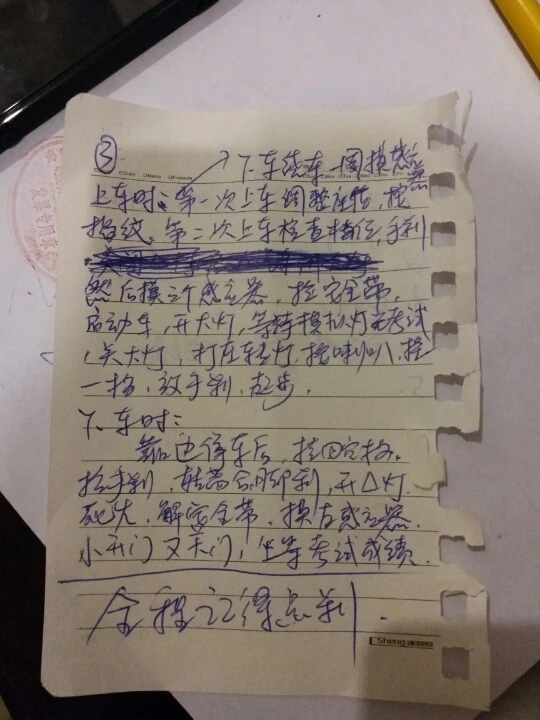 ③
下车绕车一周摸感应器
上车时:第一次上车调整座椅,按
指纹。第二次上车检查档位,手刹
然后摸三个感应器,拉安全带,
启动车,开大灯,等待模拟灯光考试
,关大灯,打左转灯,按喇叭,挂
一档,放手刹,起步。
下车时:
靠边停车后,挂回空档。
拉手刹,转离合脚刹,开△灯
熄火,解安全带,摸左感应器,
小开门又关门,坐等考试成绩.
全程记得点刹.